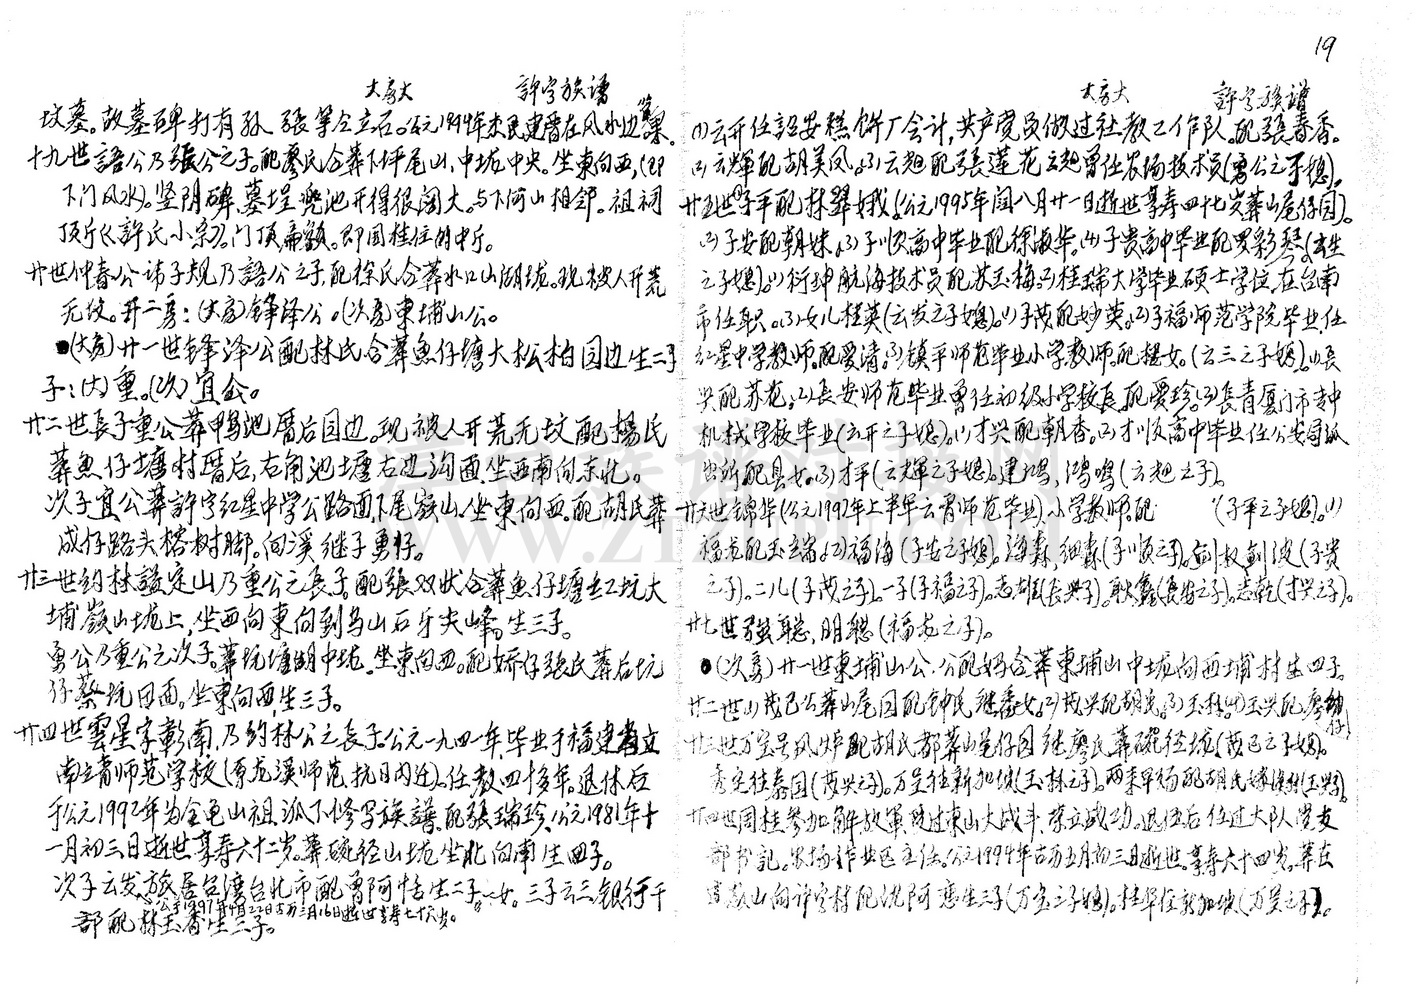 19
大房大 許字族譜
坟墓。故墓碑打有孙 張等仝立石。公元1994年李民建厝在风水边
十九世語公乃張公之子。配廖氏合葬下坪尾山,中垅中央。坐東向西,(即
下门风水)。竖阴碑,墓埕兜池开得很阔大。与下何山相邻。祖祠
顶厅《許氏小宗》。门顶扁额。即国桂位的中厅。
廿世仲春公讳子規乃語公之子,配徐氏合葬水口山湖垅。现被人开荒
无坟。开二房:(大房)鋒泽公。(次房)東埔山公。
●(大房)廿一世鋒泽公配林氏合葬魚仔塘大松柏园边生二子
子:(大)重。(次)宜仝。
廿二世長子重公葬鴨池厝后园边。现被人开荒无坟配楊氏
葬魚仔塘村厝后,右角池塘右边沟面,坐西南向东北。
次子宜公葬許字红星中学公路面下尾嶺山,坐東向西。配胡氏葬
成仔路头榕树脚。向溪继子勇仔。
廿三世約林諡定山乃重公之長子,配張双状合葬魚仔塘红坑大
埔嶺山垅上,坐西向東向到鸟山石牙尖峰。生三子。
勇公乃重公之次子。葬坑塘湖中垅,坐東向西。配娇仔張氏葬后坑
仔蔡坑田面。坐東向西,生三子。
廿四世雲星字彰南,乃約林公之長子。公元一九四一年毕业于福建省立
南靖师范学校(原龙溪师范抗日内迁)。任教四十多年。退休后
于公元1992年为金龟山祖派下修写族譜。配張瑞珍,公元1981年十
一月初三日逝世享寿六十二岁。葬硬径山垅坐北向南生四子。
次子云发旅居台湾台北市配曾阿恬生二子一女。三子云三銀行干
部配林玉香生三子。
大房大 許字族譜
(1)云开任詔安糕餅厂会计,共产党员做过社教工作队。配張春香。
(2)云輝配胡美凤。(3)云旭配張莲花云旭曾任农场技术员(勇公之子媳)。
廿五世(1)子平配林翠娥(公元1995年閏八月廿一日逝世享寿四十七岁葬山尾仔园)。
(2)子安配朝妹。(3)子順高中毕业配徐淑华。(4)子贵高中毕业配罗彩琴。(云星
之子媳)。(1)衍坤航海技术员配苏玉梅(2)桂瑞大学毕业硕士学位,在台南
市任职。(3)女儿桂英(云发之子媳)。(1)子茂配妙英。(2)子福师范学院毕业任
红星中学教师。配爱清。(3)镇平师范毕业小学教师。配楼女。(云三之子媳)。(1)長
兴配苏花。(2)長安师范毕业曾任初级小学校長,配爱珍。(3)長青厦门市专中
机械学校毕业(云开之子媳)。(1)才兴配朝香。(2)才順高中毕业任公安局派
出所配县女。(3)才平(云輝之子媳)。建鸿,鸿鸣(云旭之子)。
廿六世锦华(公元1992年上半年云霄师范毕业)小学教师。配 (子平之子媳)。(1)
福龙配玉端。(2)福海(子安之子媳)。海森,细森(子順之子)。劍权劍波(子贵
之子)。二儿(子茂之子)。一子(子福之子)。志雄(長兴子)。耿鑫(長安之子)。志乾(才兴之子)。
廿七世强聪,明聪(福龙之子)。
●(次房)廿一世東埔山公。公配妈合葬東埔山中垅向西埔村生四子。
廿二世(1)茂己公葬山尾园配钟氏继番女。(2)茂兴配胡氏。(3)玉林。(4)玉兴配廖
廿三世万呈号风炉配胡氏都葬山尾仔园继廖氏葬硬径垅(茂己之子媳)。
秀呈往泰国(茂兴之子)。万呈往新加坡(玉林之子)。两来早殇配胡氏(玉兴子)。
廿四世周桂参加解放軍渡过東山大战斗,荣立战功。退伍后任过大队党支
部书記。农场作业区主任。公元1994年古历五月初三日逝世。享寿六十四岁,葬在
山向許字村配沈阿恋生三子(万呈之子媳)。桂华往新加坡(万呈之子)。